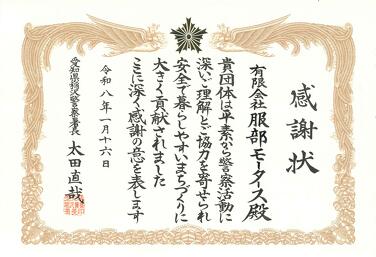 感謝状
有限会社 服部モータース殿
貴団体は平素から警察活動に
深いご理解とご協力を寄せられ
安全で暮らしやすいまちづくりに
大きく貢献されました
ここに深く感謝の意を表します
令和八年一月十六日
愛知県稲沢警察署長
太田直哉